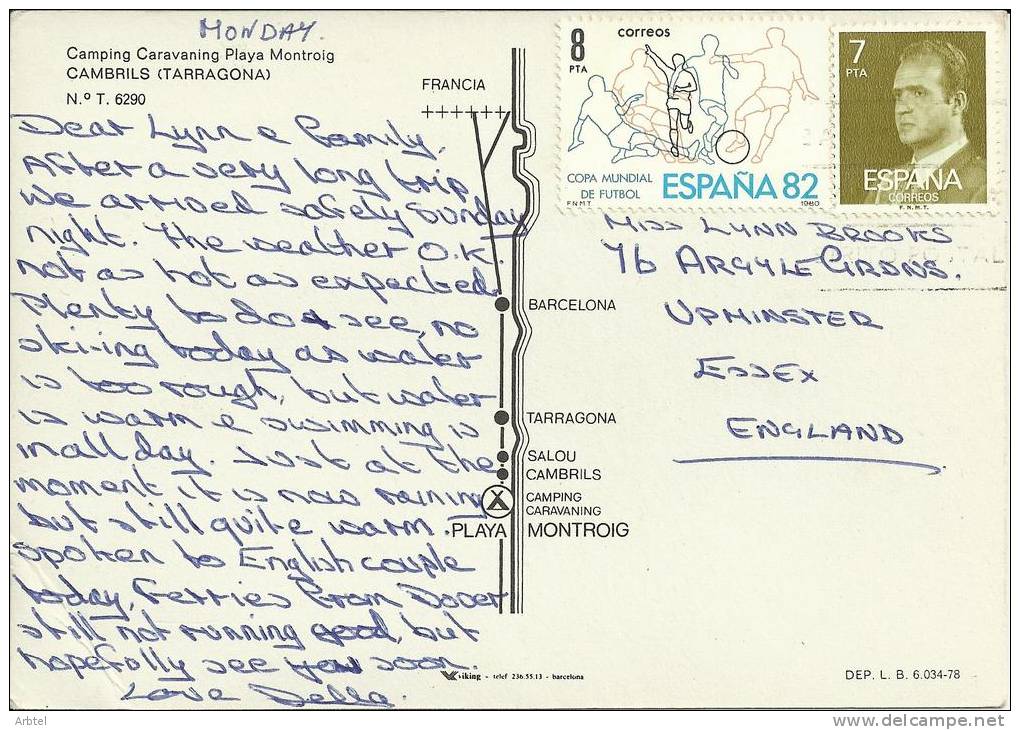 MONDAY.
Camping Caravaning Playa Montroig
CAMBRILS (TARRAGONA)
N.º T. 6290
Dear Lynn & family,
After a very long trip
we arrived safely Sunday
night. The weather O.K.
not as hot as expected.
Plenty to do & see, no
ski-ing today as water
is too rough, but water
is warm & swimming is
in all day. Just at the
moment it is now raining
but still quite warm.
Spoken to English couple
today, Ferries from Dover
still not running good, but
hopefully see you soon.
Love Della.
FRANCIA
BARCELONA
TARRAGONA
SALOU
CAMBRILS
CAMPING
CARAVANING
PLAYA MONTROIG
viking - telef 236.55.13 - barcelona
8
PTA
correos
COPA MUNDIAL
DE FUTBOL
ESPAÑA 82
F.N.M.T.
1980
7
PTA
ESPAÑA
CORREOS
F.N.M.T.
MISS LYNN BROOKS
76 ARGYLE GRDNS.
UPMINSTER
ESSEX
ENGLAND
DEP. L. B. 6.034-78
Arbtel
delcampe.net